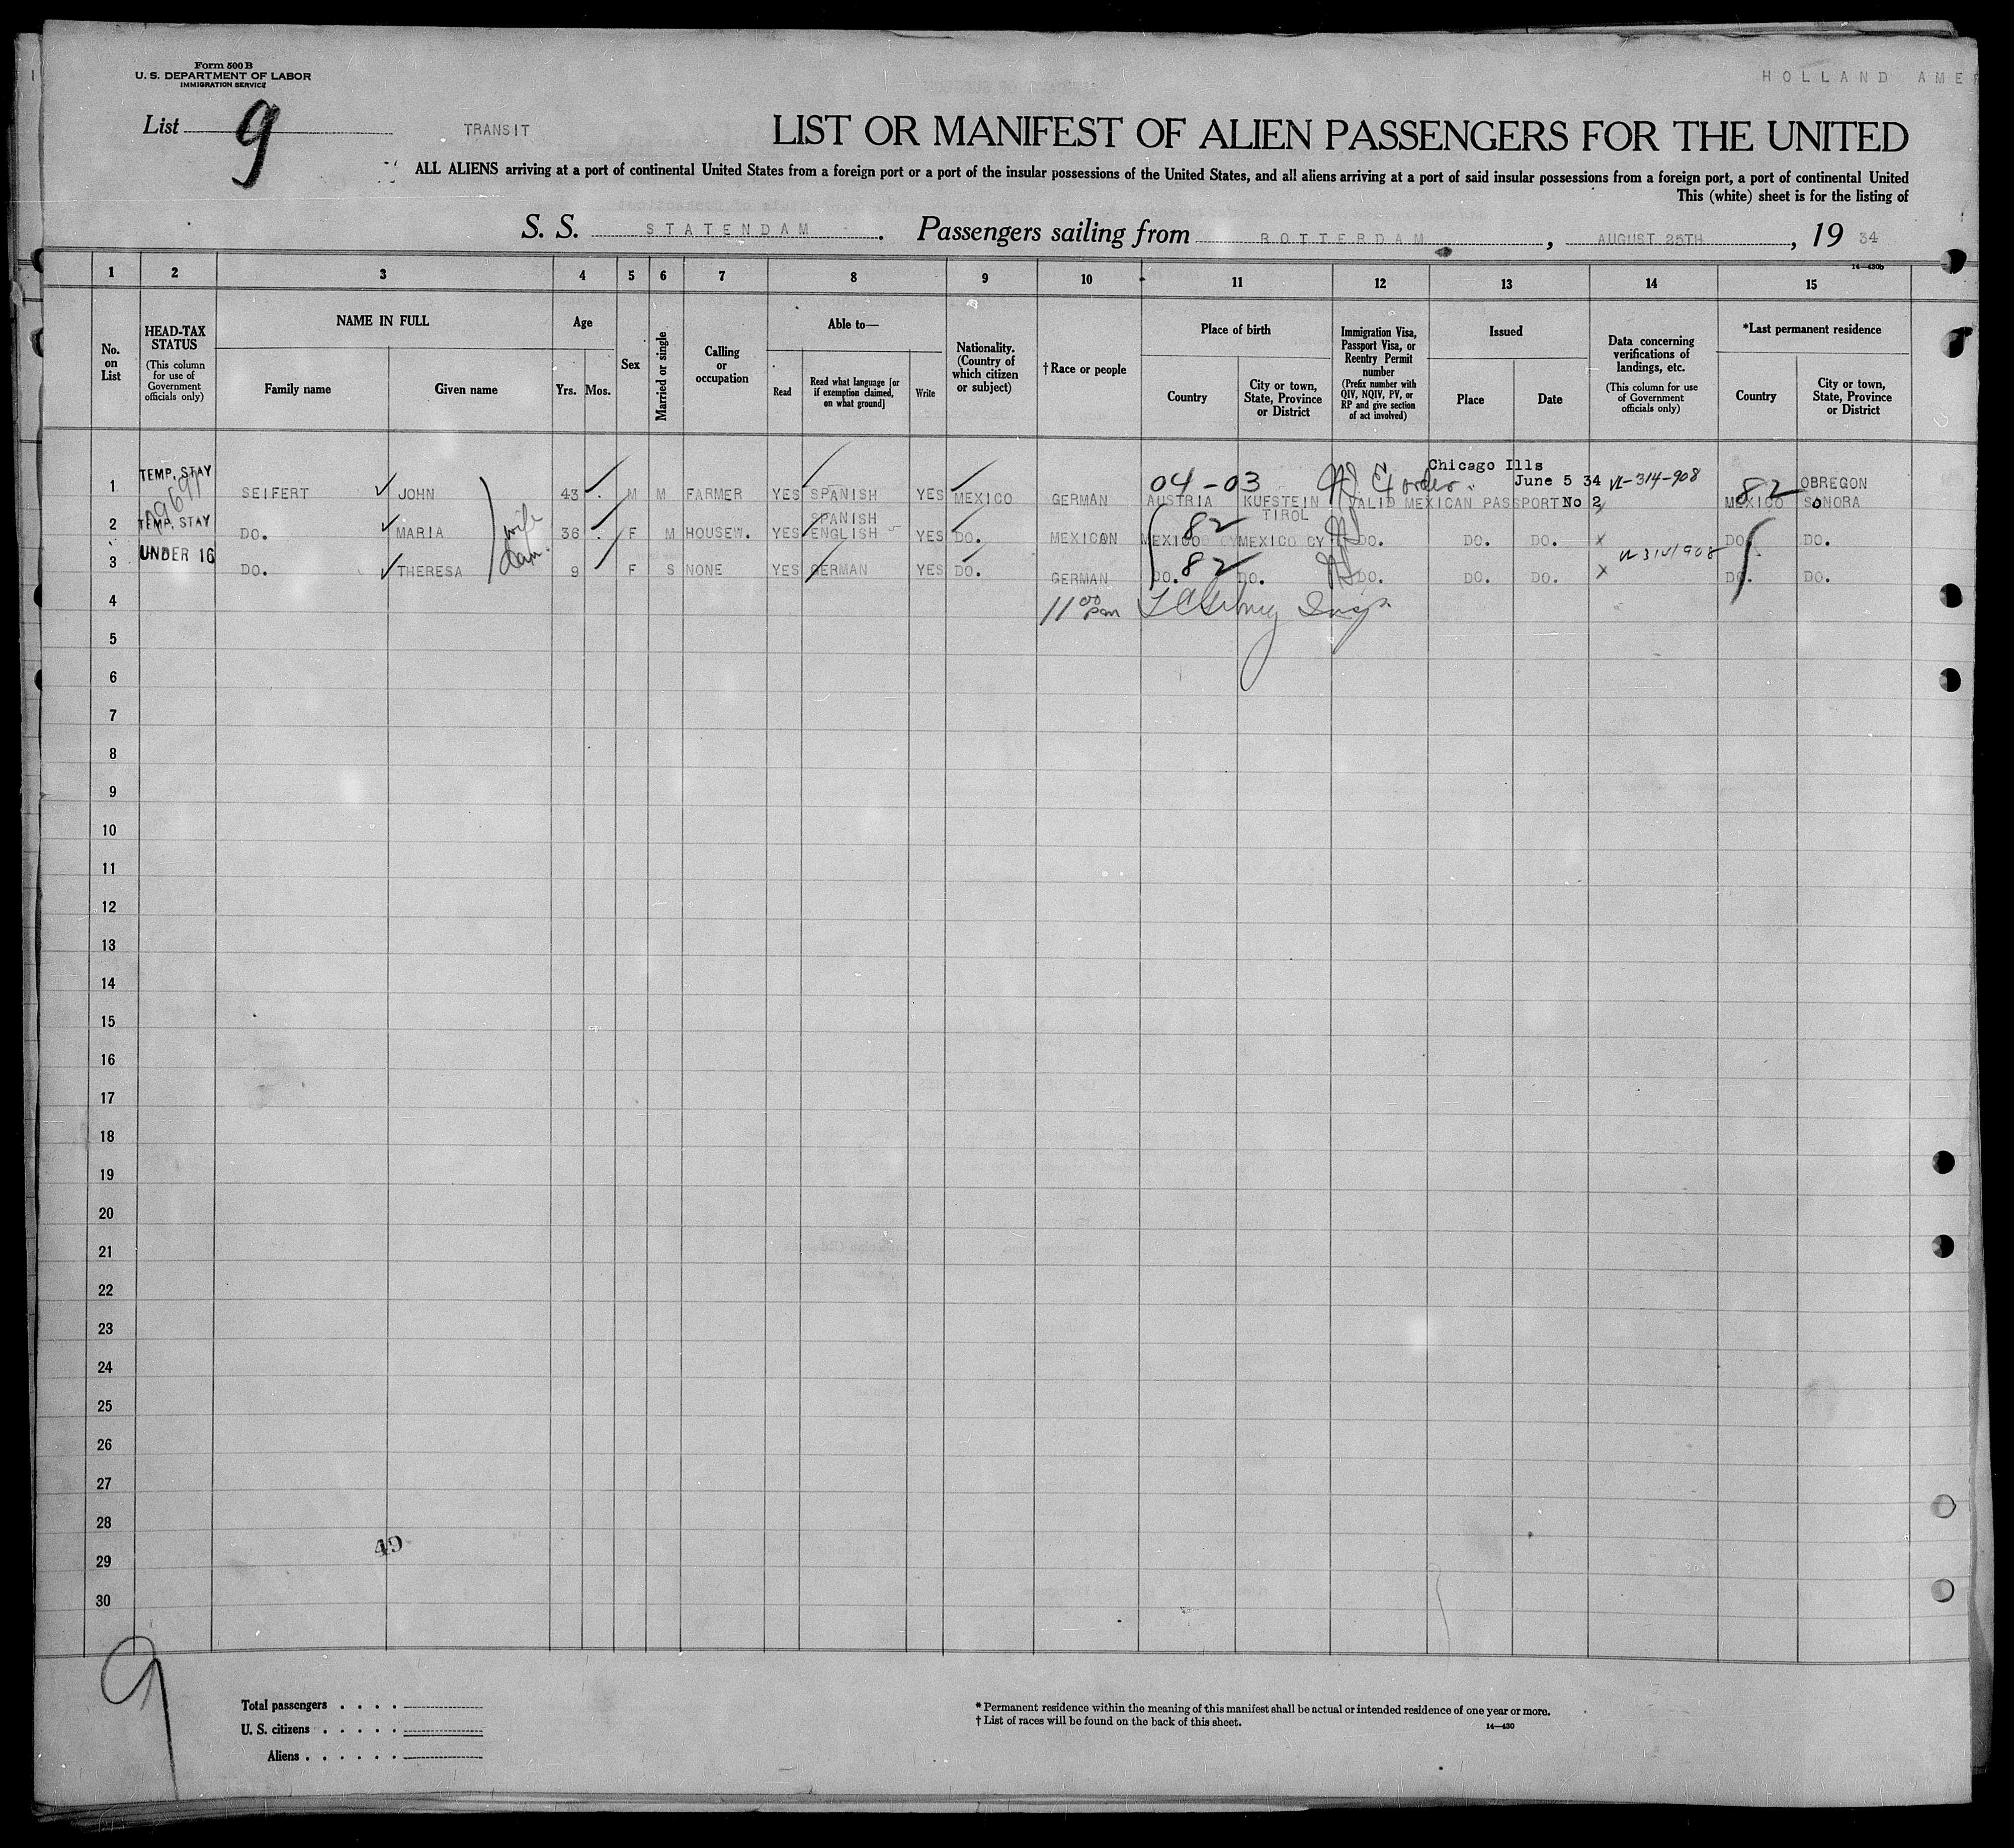 Form 500 B
U. S. DEPARTMENT OF LABOR
IMMIGRATION SERVICE
HOLLAND AMER
List 9
TRANSIT
LIST OR MANIFEST OF ALIEN PASSENGERS FOR THE UNITED
ALL ALIENS arriving at a port of continental United States from a foreign port or a port of the insular possessions of the United States, and all aliens arriving at a port of said insular possessions from a foreign port, a port of continental United
This (white) sheet is for the listing of
S. S. STATENDAM. Passengers sailing from ROTTERDAM, AUGUST 25TH, 19 34
14—430b
1 2 3 4 5 6 7 8 9 10 11 12 13 14 15
No. on List
HEAD-TAX STATUS
(This column for use of Government officials only)
NAME IN FULL
Family name
Given name
Age
Yrs.
Mos.
Sex
Married or single
Calling or occupation
Able to—
Read
Read what language [or if exemption claimed, on what ground]
Write
Nationality. (Country of which citizen or subject)
† Race or people
Place of birth
Country
City or town, State, Province or District
Immigration Visa, Passport Visa, or Reentry Permit number
(Prefix number with QIV, NQIV, PV, or RP and give section of act involved)
Issued
Place
Date
Data concerning verifications of landings, etc.
(This column for use of Government officials only)
*Last permanent residence
Country
City or town, State, Province or District
TEMP. STAY 04-03 order Chicago Ills
June 5 34 VL-314-908 82 OBREGON
1 SEIFERT JOHN 43 M M FARMER YES SPANISH YES MEXICO GERMAN AUSTRIA KUFSTEIN TIROL VALID MEXICAN PASSPORT No 2 MEXICO SONORA
TEMP. STAY
2 DO. MARIA wife 36 F M HOUSEW. YES SPANISH ENGLISH YES DO. MEXICAN 82 MEXICO MEXICO CY DO. DO. DO. x DO. DO.
UNDER 16
3 DO. THERESA 9 F S NONE YES GERMAN YES DO. GERMAN 82 DO. DO. DO. DO. DO. x DO. DO.
4 11 00 pm Insp
5
6
7
8
9
10
11
12
13
14
15
16
17
18
19
20
21
22
23
24
25
26
27
28
49
29
30
9
Total passengers . . . .
U. S. citizens . . . . .
Aliens . . . . . .
* Permanent residence within the meaning of this manifest shall be actual or intended residence of one year or more.
† List of races will be found on the back of this sheet.
14—430